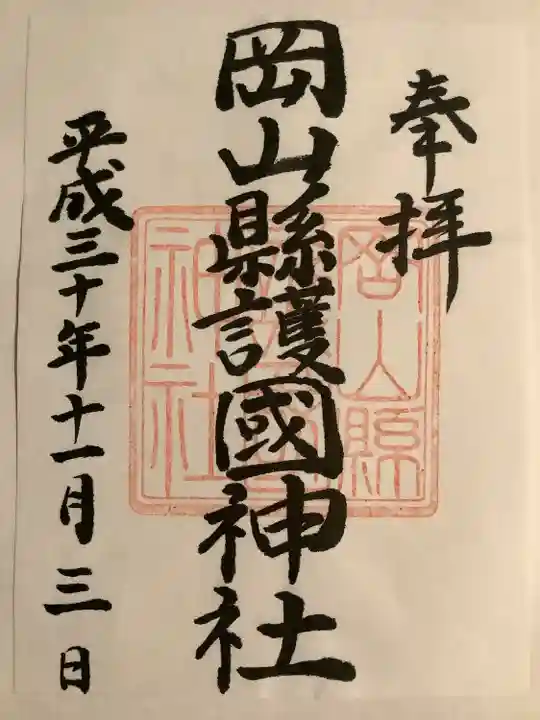 奉拝
岡山縣護國神社
岡山縣護國神社
平成三十年十一月三日